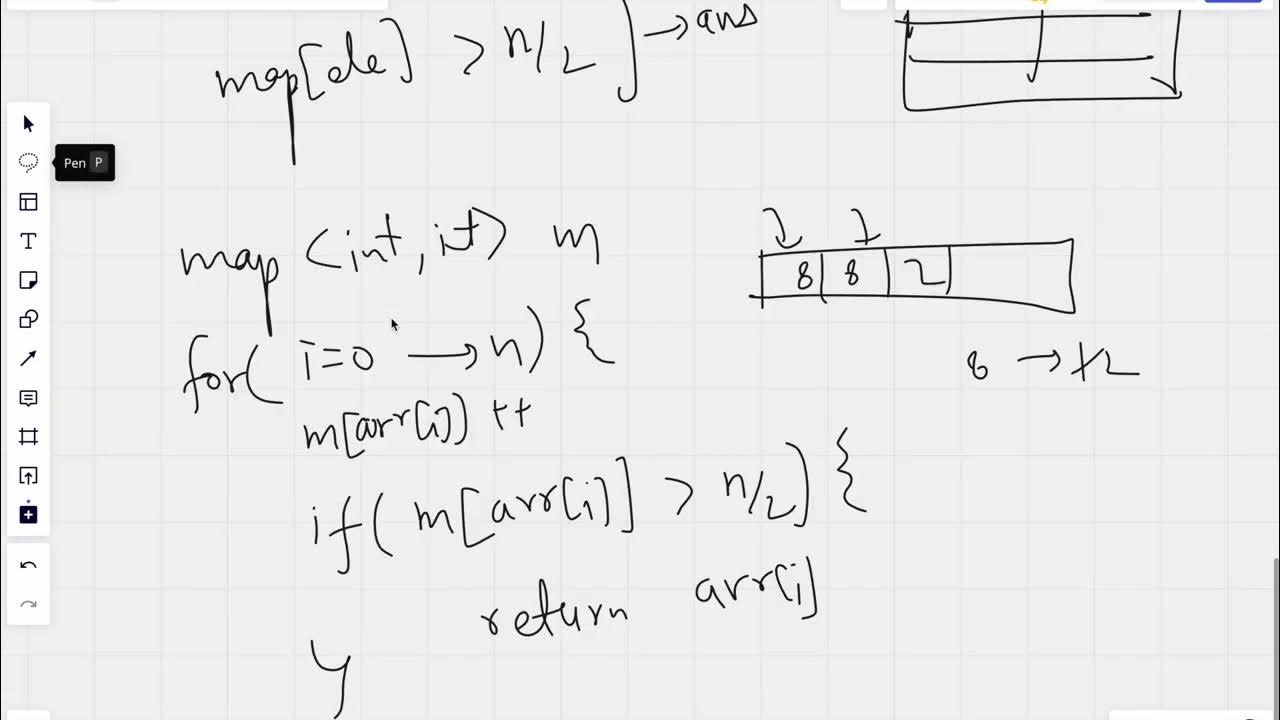 map[ele] > n/2] → ans
Pen P
T
map <int, it> m
8 8 2
for( i=0 → n) {
8 → 12
m[arr[i]] ++
if( m[arr[i]] > n/2) {
return arr[i]
}